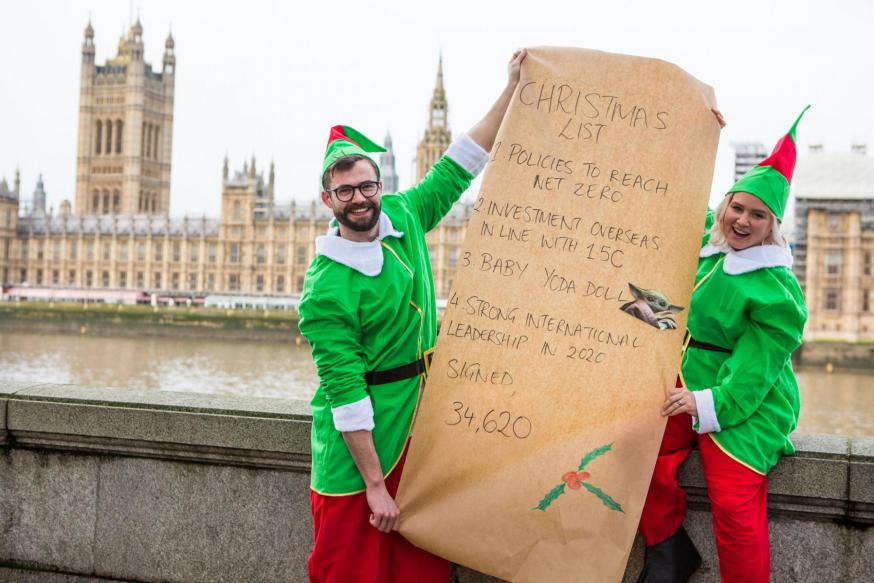 CHRISTMAS
LIST
1 POLICIES TO REACH
NET ZERO
2. INVESTMENT OVERSEAS
IN LINE WITH 1.5C
3. BABY YODA DOLL
4. STRONG INTERNATIONAL
LEADERSHIP IN 2020
SIGNED,
34,620